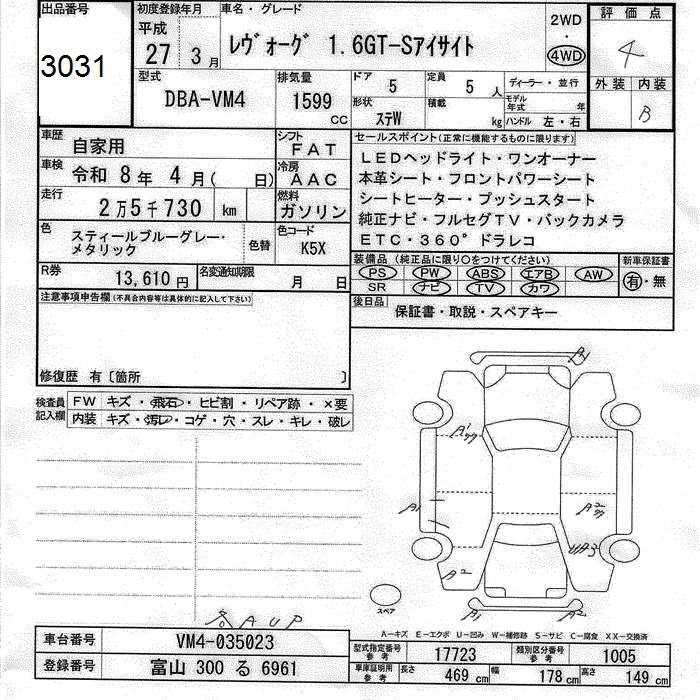 出品番号
3031
初度登録年月
平成
27 3 月
車名・グレード
ﾚｳﾞｫｰｸﾞ 1.6GT-Sアイサイト
2WD
・
4WD
評 価 点
4
外装 内装
B
型式
DBA-VM4
排気量
1599
CC
ドア
5
定員
5 人
ディーラー・並行
形状
ステW
積載
kg
モデル
年式 年
ハンドル 左・右
車歴
自家用
シフト
FAT
車検
令和 8年 4月( 日)
冷房
AAC
走行
2万5千730 km
燃料
ガソリン
色
スティールブルーグレー・
メタリック
色替
色コード
K5X
R券
13,610円
名変通知期限
月 日
セールスポイント(正常に機能するものに限ります)
LEDヘッドライト・ワンオーナー
本革シート・フロントパワーシート
シートヒーター・プッシュスタート
純正ナビ・フルセグTV・バックカメラ
ETC・360°ドラレコ
装備品(純正品に限り○をつけてください)
PS PW ABS エアB AW
SR ナビ TV カワ
新車保証書
有・無
後日品
保証書・取説・スペアキー
注意事項申告欄(不具合内容等は具体的に記入して下さい)
修復歴 有〔箇所 〕
検査員
記入欄
FW キズ・飛石・ヒビ割・リペア跡・×要
内装 キズ・汚レ・コゲ・穴・スレ・キレ・破レ
A1
A1
A2
A1
A2
UA3
A2
A1
A2
スペア
各AUP
A-キズ E-エクボ U-凹み W-補修跡 S-サビ C-腐食 XX-交換済
車台番号
VM4-035023
型式指定番号
参考
17723
類別区分番号
参考
1005
登録番号
富山 300 る 6961
車庫証明用
参考
長さ
469 cm
幅
178 cm
高さ
149 cm